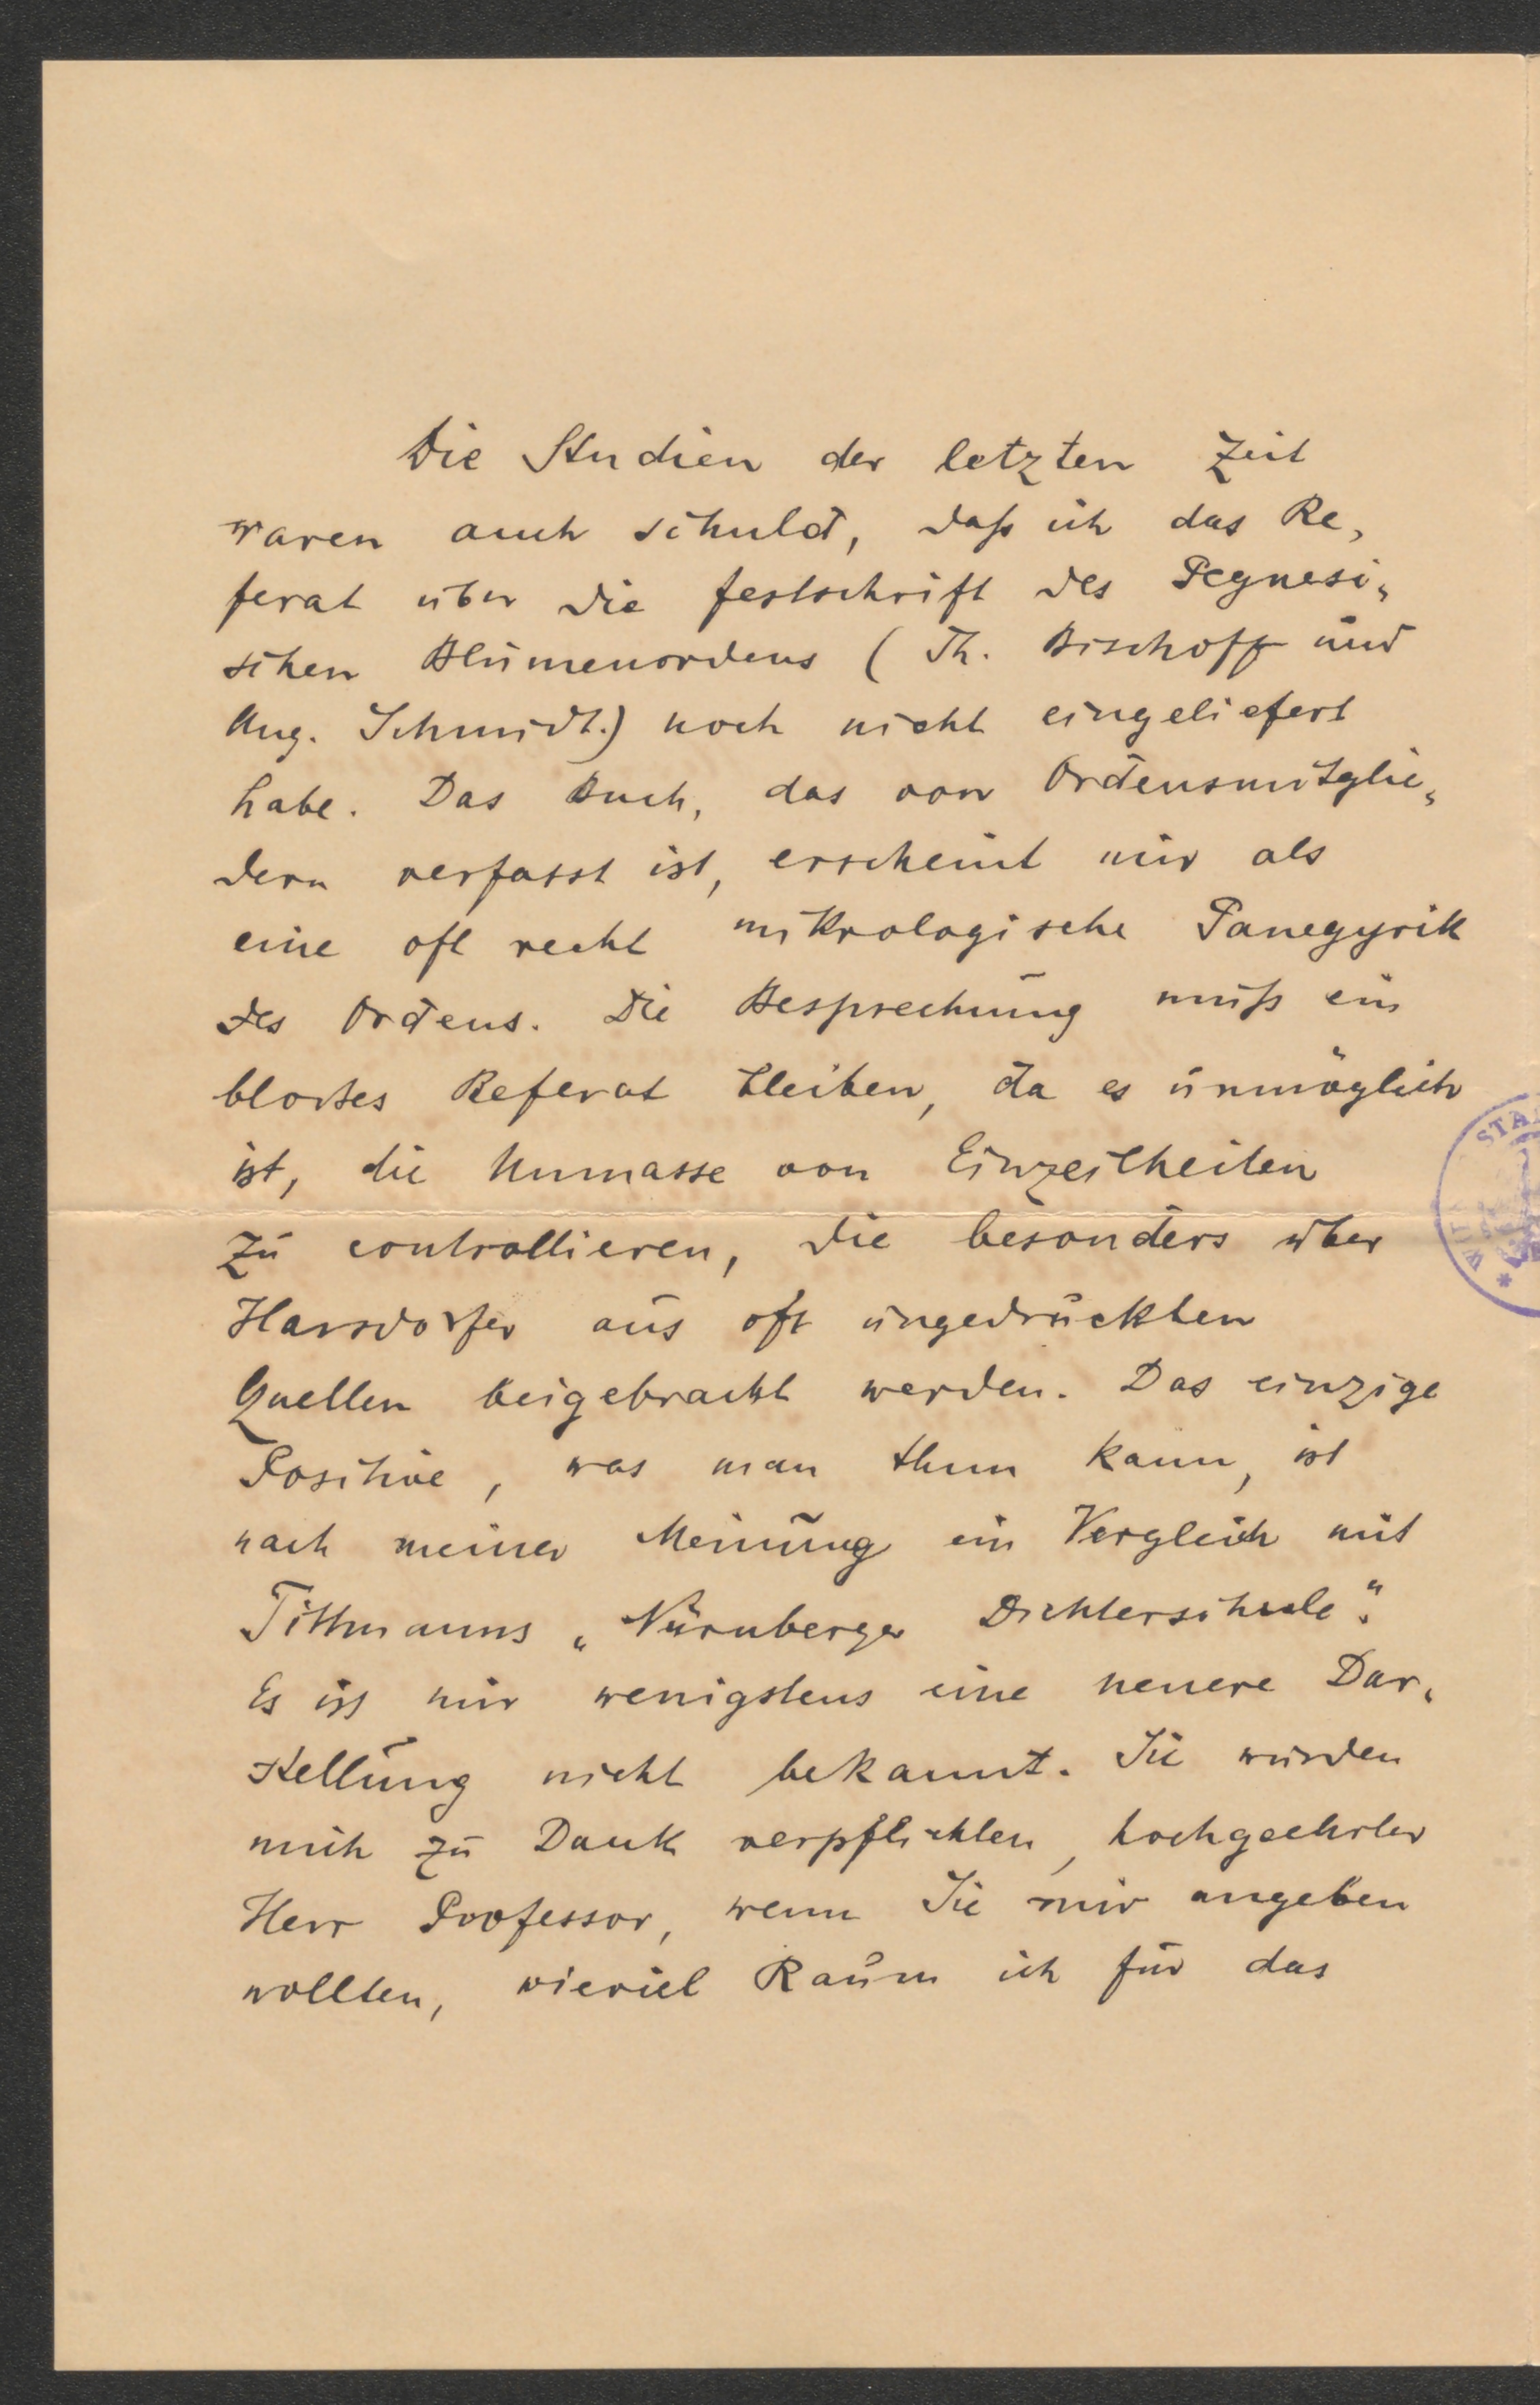 Die Studien der letzten Zeit
waren auch schuld, daß ich das Re„
ferat über die Festschrift des Pegnesi„
schen Blumenordens (Th. Bischoff und
Aug. Schmidt.) noch nicht eingeliefert
habe. Das Buch, das von Ordensmitglie„
dern verfasst ist, erscheint mir als
eine oft recht mikrologische Panegyrik
des Ordens. Die Besprechung muß ein
blosses Referat bleiben, da es unmöglich
ist, die Unmasse von Einzeilheiten
zu controllieren, die besonders über
Harsdorfer aus oft ungedruckten
Quellen beigebracht werden. Das einzige
Positive, was man thun kann, ist
nach meiner Meinung ein Vergleich mit
Tittmanns „Nürnberger Dichterschule“.
Es ist mir wenigstens eine neuere Dar„
stellung nicht bekannt. Sie würden
mich zu Dank verpflichten, hochgeehrter
Herr Professor, wenn Sie mir angeben
wollten, wieviel Raum ich für das
STA
WI